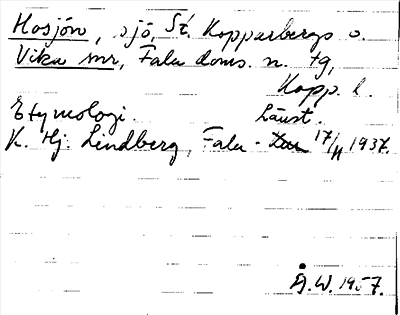 Hosjön, sjö, St. Kopparbergs o.
Vika snr, Falu doms. n. tg,
Kopp. l.
Etymologi. Läust.
K. Hj. Lindberg, Falu - 17/11 1937.
Å.W. 1957.